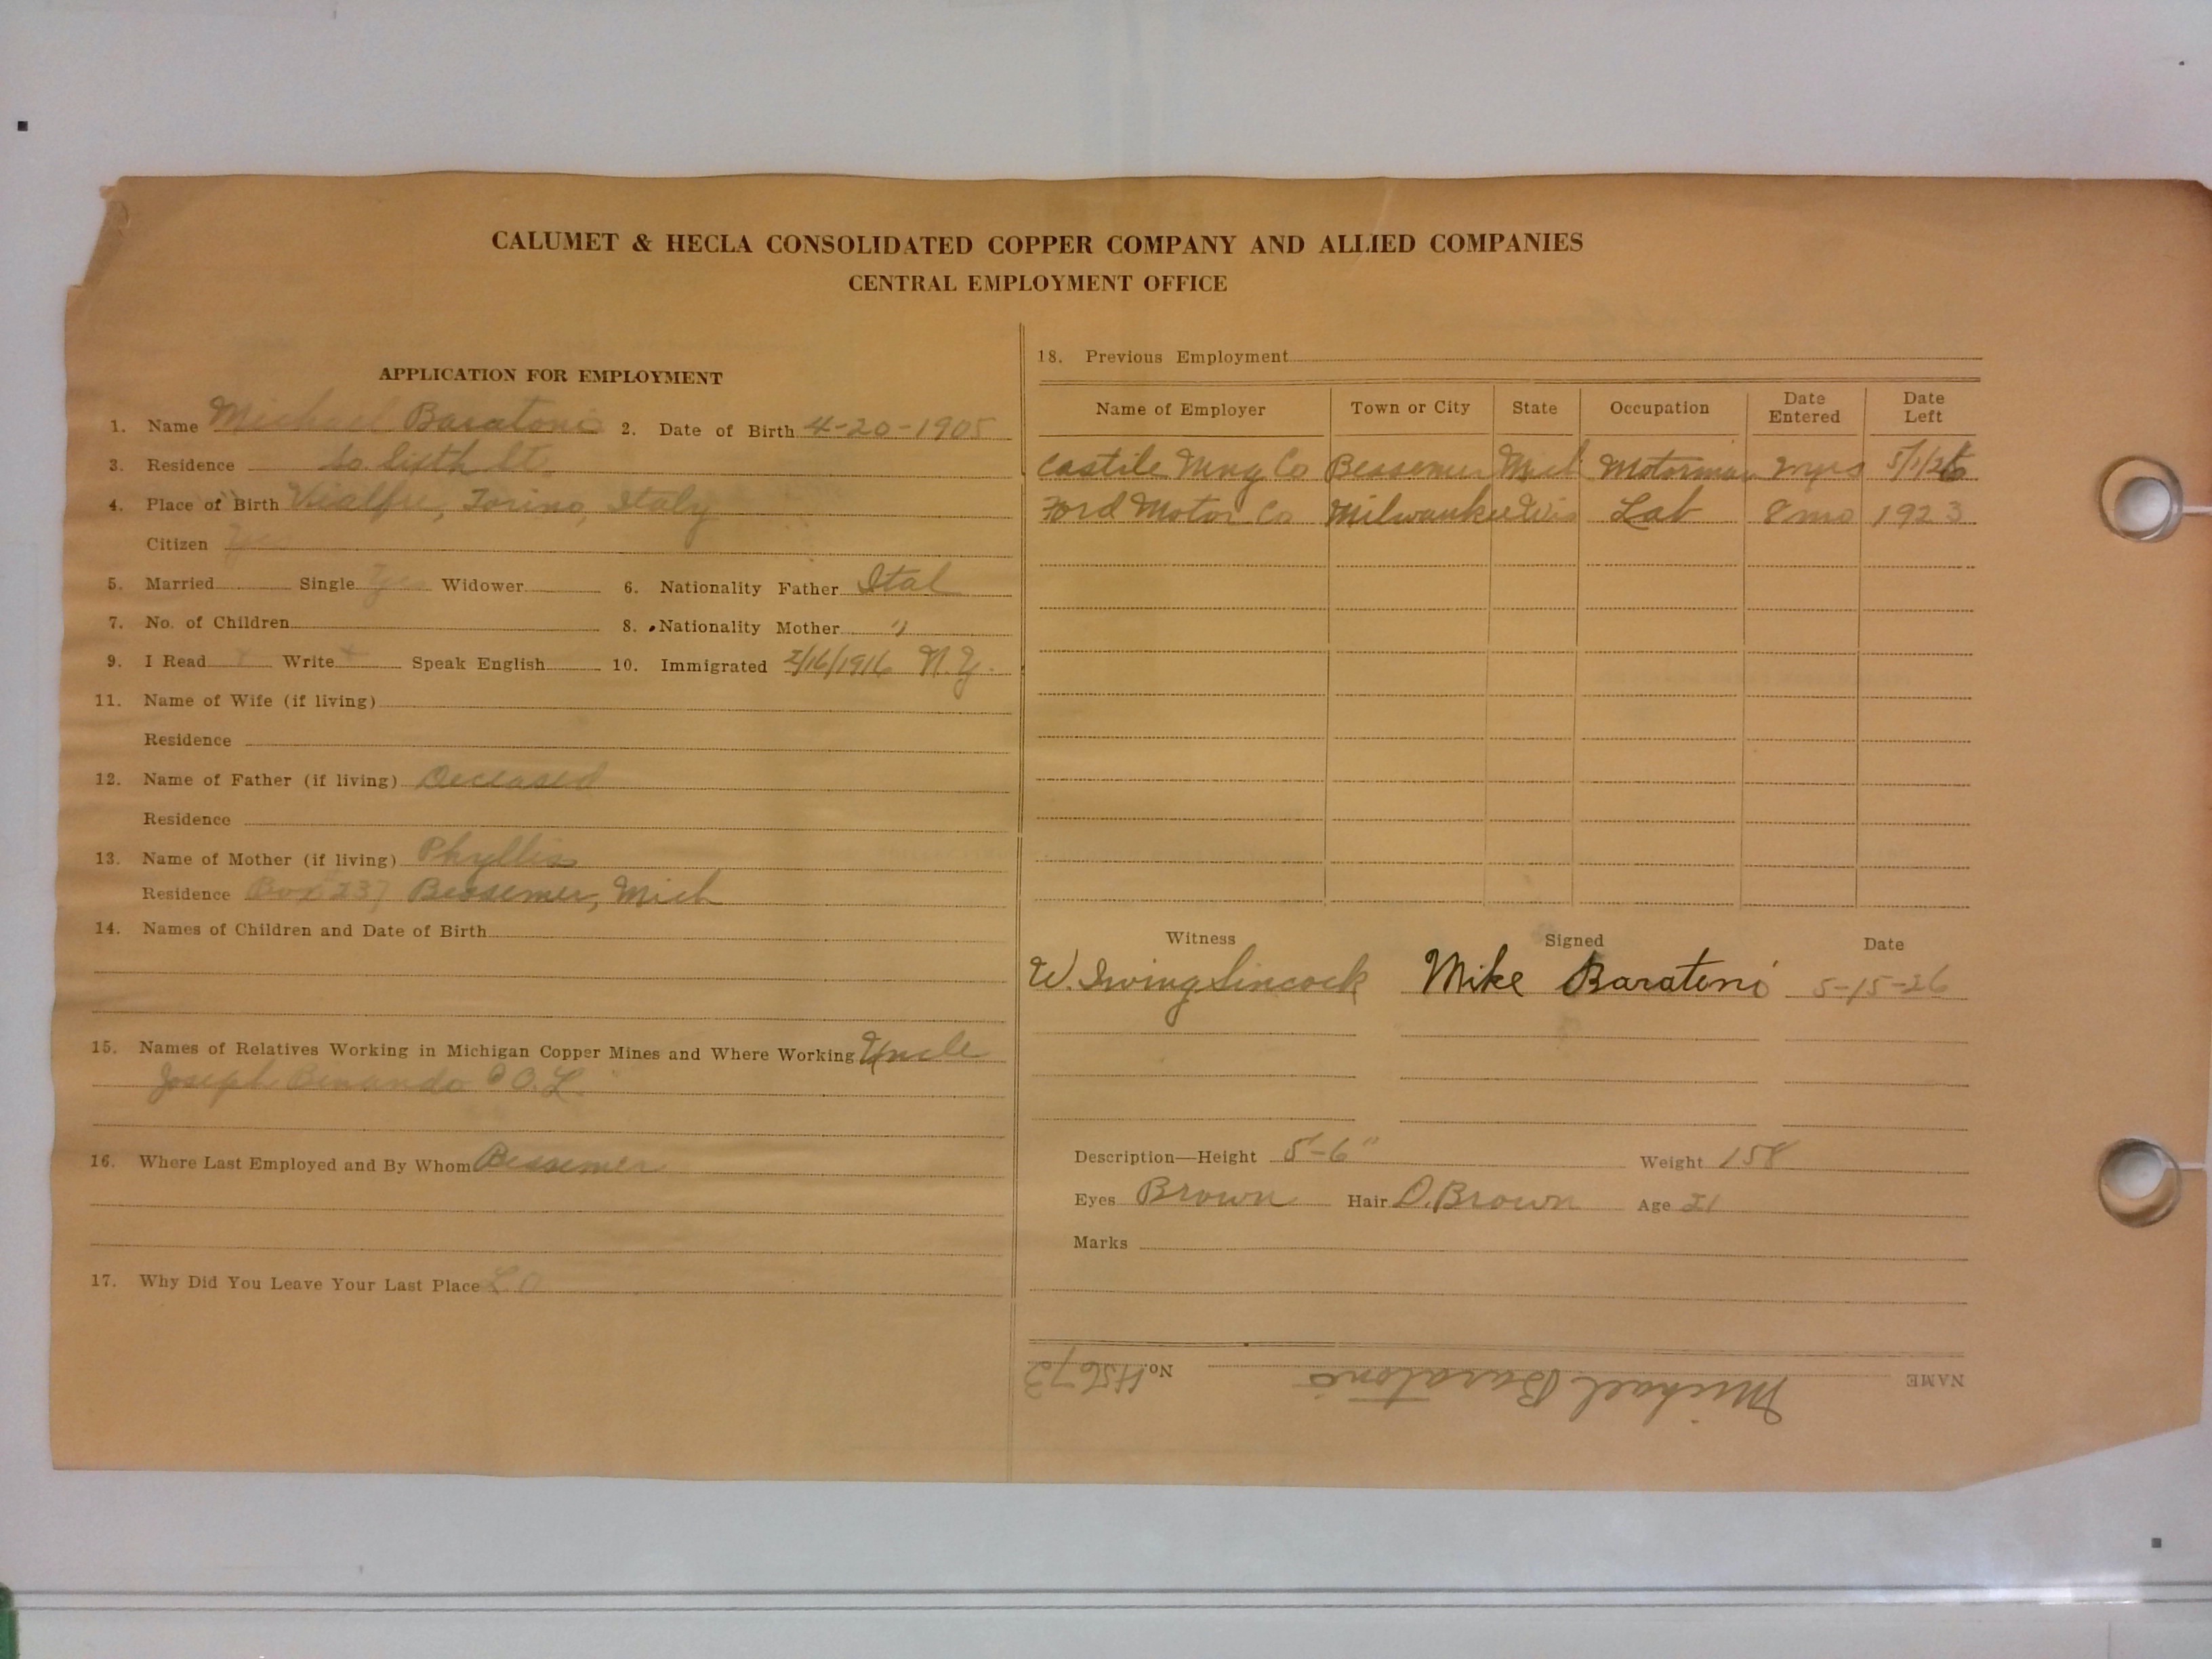 CALUMET & HECLA CONSOLIDATED COPPER COMPANY AND ALLIED COMPANIES
CENTRAL EMPLOYMENT OFFICE
APPLICATION FOR EMPLOYMENT
1. Name Michael Baratoni 2. Date of Birth 4-20-1905
3. Residence So. Sixth St.
4. Place of Birth Vialfre, Torino, Italy
Citizen Yes
5. Married Single Yes Widower 6. Nationality Father Ital
7. No. of Children 8. Nationality Mother "
9. I Read x Write x Speak English 10. Immigrated 2/16/1916 N.Y.
11. Name of Wife (if living)
Residence
12. Name of Father (if living) Deceased
Residence
13. Name of Mother (if living) Phyllis
Residence Box 237 Bessemer, Mich
14. Names of Children and Date of Birth
15. Names of Relatives Working in Michigan Copper Mines and Where Working Uncle
Joseph Benando O.L.
16. Where Last Employed and By Whom Bessemer
17. Why Did You Leave Your Last Place L O
18. Previous Employment
Name of Employer Town or City State Occupation Date Entered Date Left
Castile Mng Co Bessemer Mich Motorman 2 yrs 5/1/26
Ford Motor Co Milwaukee Wis Lab 8 mo 1923
Witness Signed Date
W. Irving Sincock Mike Baratoni 5-15-26
Description—Height 5-6" Weight 158
Eyes Brown Hair D. Brown Age 21
Marks
NAME Michael Baratoni No. H5673